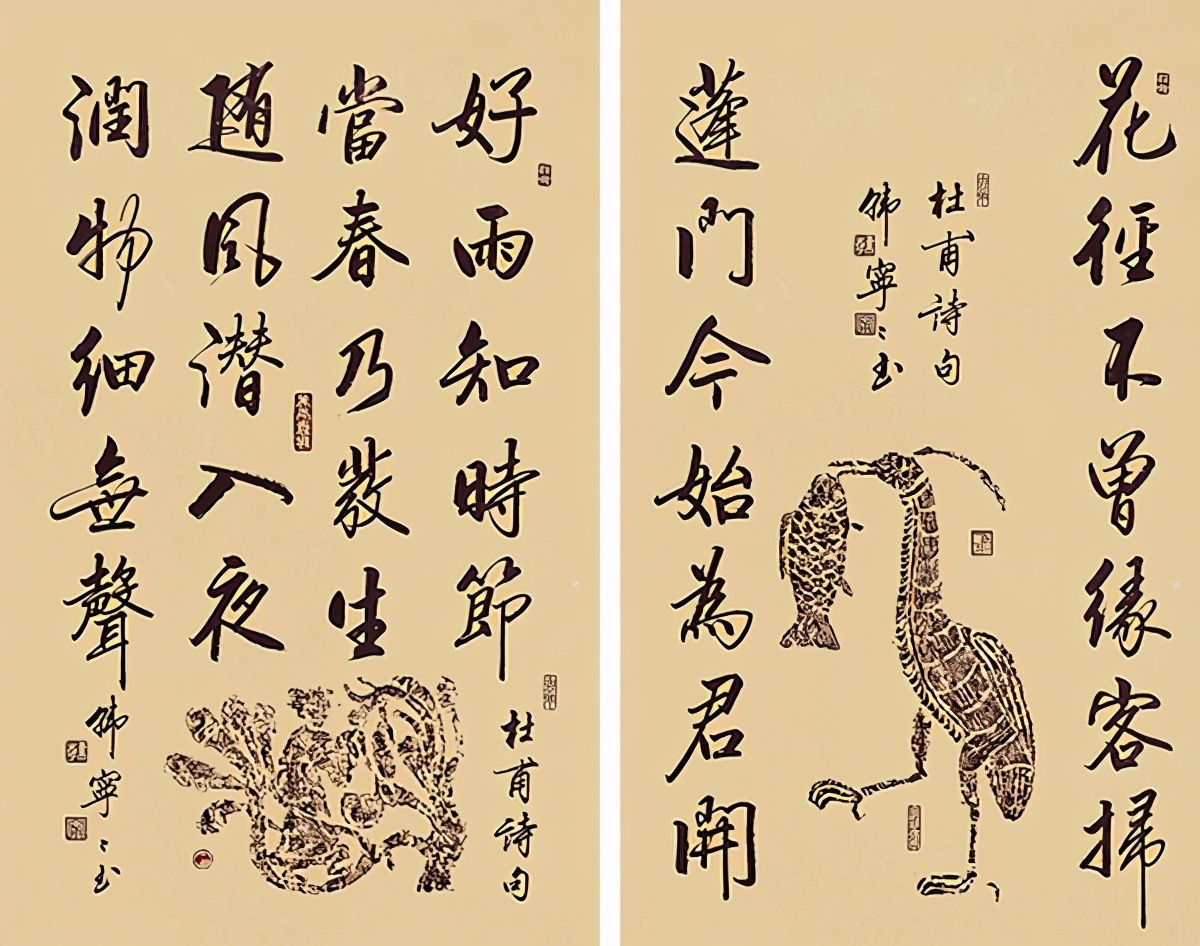 好雨知時節
當春乃發生
随風潜入夜
潤物細無聲
杜甫詩句
花徑不曾緣客掃
蓬門今始為君開
杜甫詩句